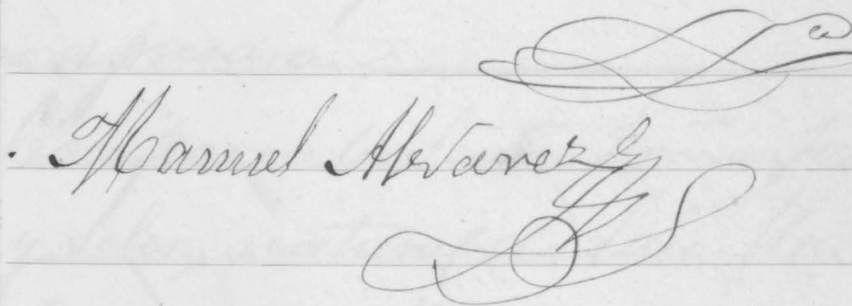 Manuel Alvarez